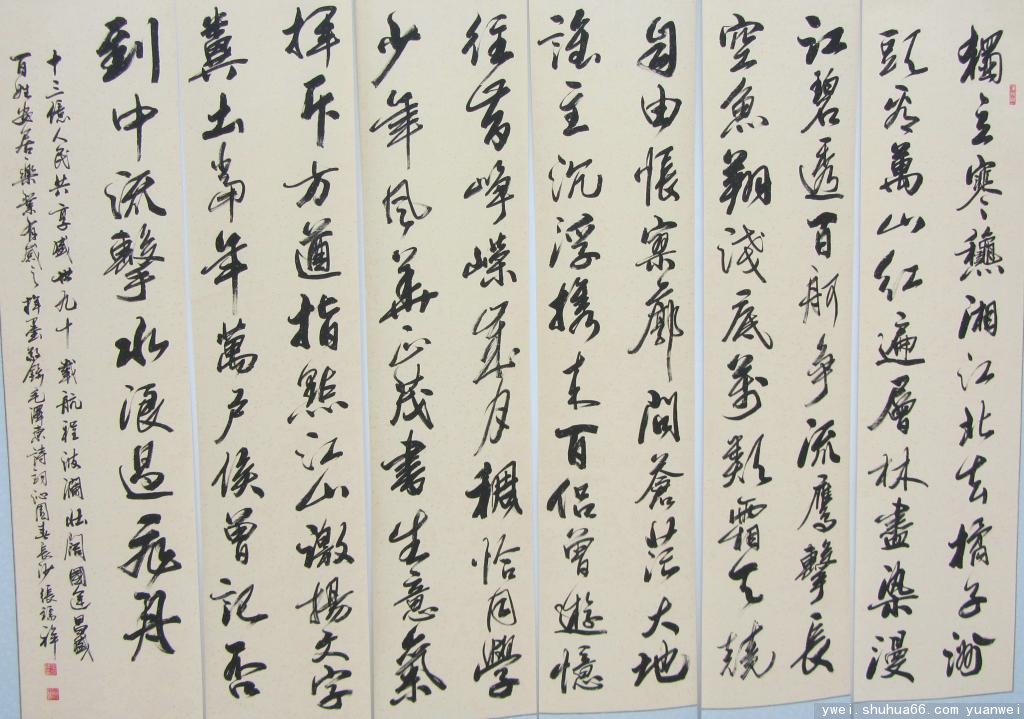 獨立寒穐湘江北去橘子洲
頭看萬山紅遍層林盡染漫
江碧透百舸爭流鷹擊長
空魚翔淺底萬類霜天競
自由悵寥廓問蒼茫大地
誰主沉浮攜來百侶曾遊憶
往昔崢嶸歲月稠恰同學
少年風華正茂書生意氣
揮斥方遒指點江山激揚文字
糞土當年萬戶侯曾記否
到中流擊水浪遏飛舟
十三億人民共享盛世九十載航程波瀾壯闊國運昌盛
百姓安居樂業有感之揮墨敬錄毛澤東詩詞沁園春長沙張瑞祥
ywei.shuhua66.com yuanwei